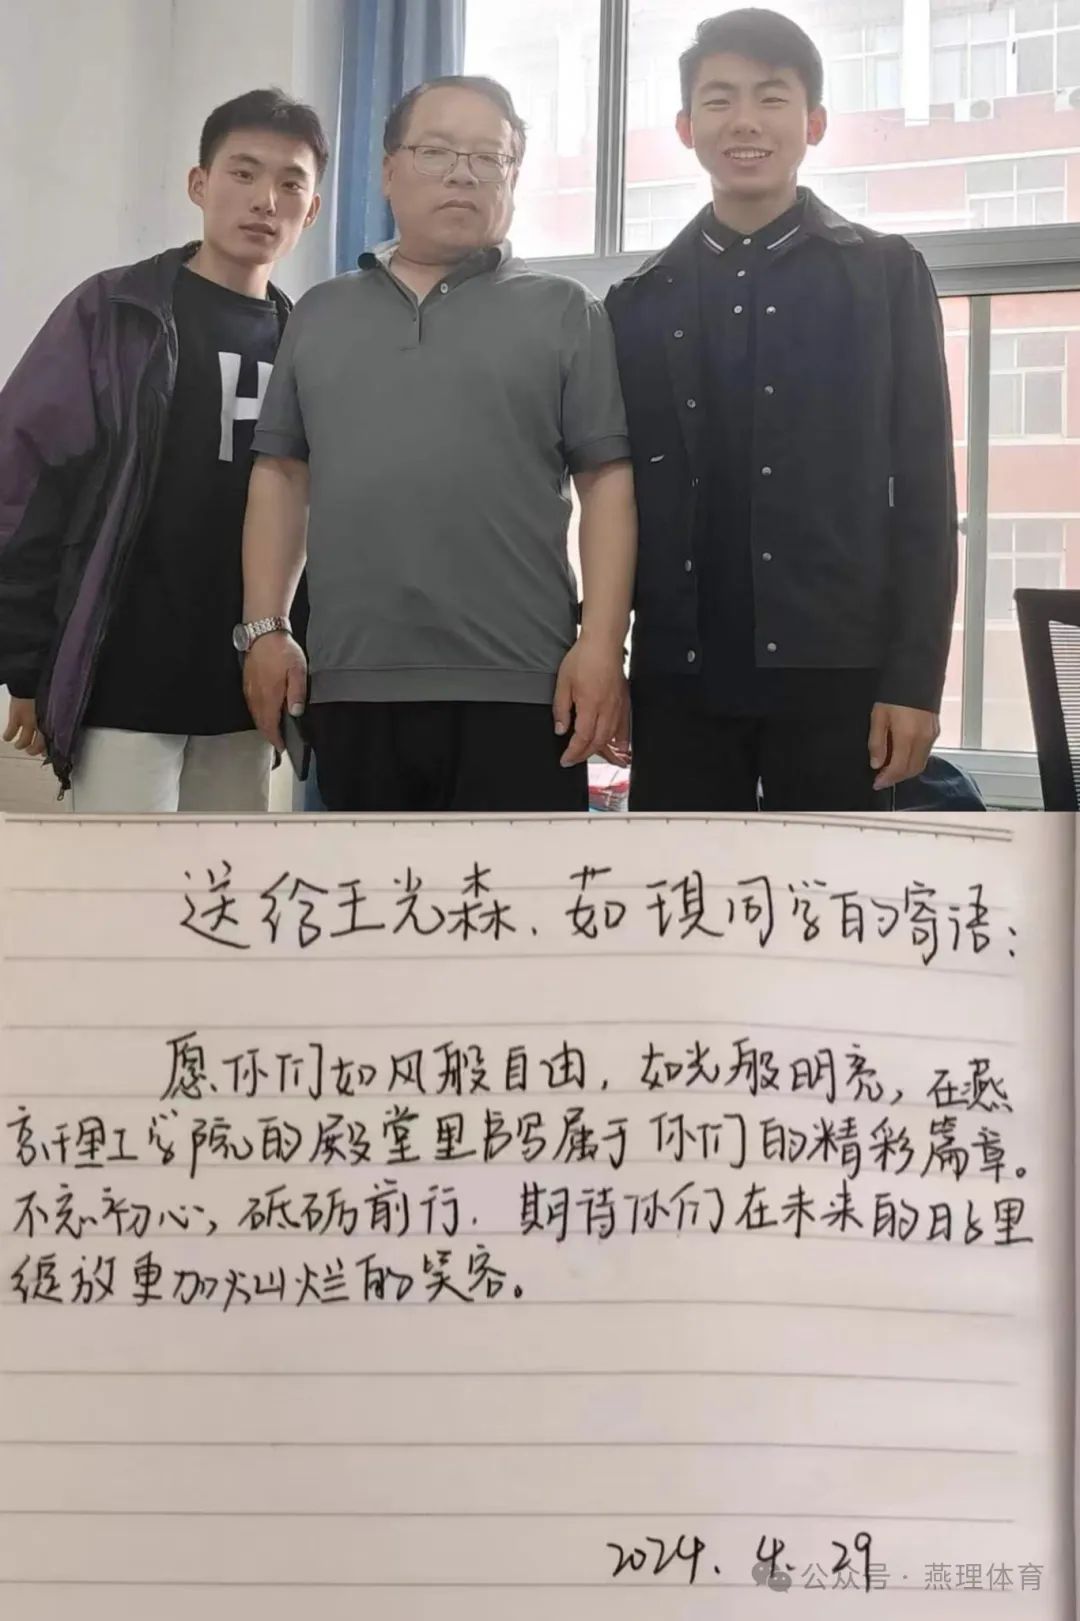 H
送给王光森、茹琪同学的寄语：
愿你们如风般自由，如光般明亮，在燕
京理工学院的殿堂里书写属于你们的精彩篇章。
不忘初心，砥砺前行，期待你们在未来的日子里
绽放更加灿烂的笑容。
2024.4.29
公众号·燕理体育